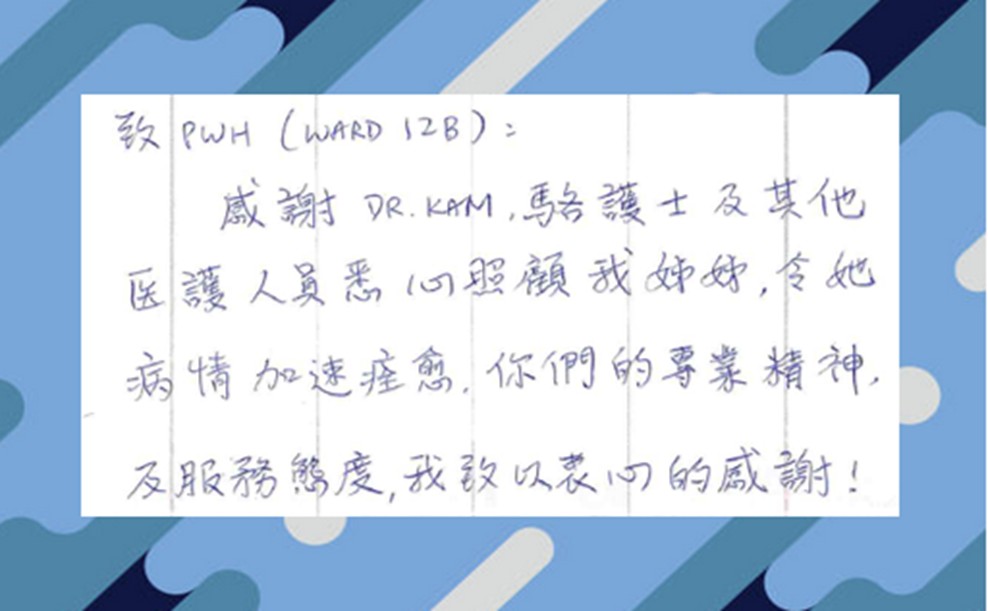 致 PWH (WARD 12B):
感謝 DR. KAM, 駱護士及其他
医護人員悉心照顧我姊姊,令她
病情加速痊愈. 你們的專業精神,
及服務態度,我致以衷心的感謝!